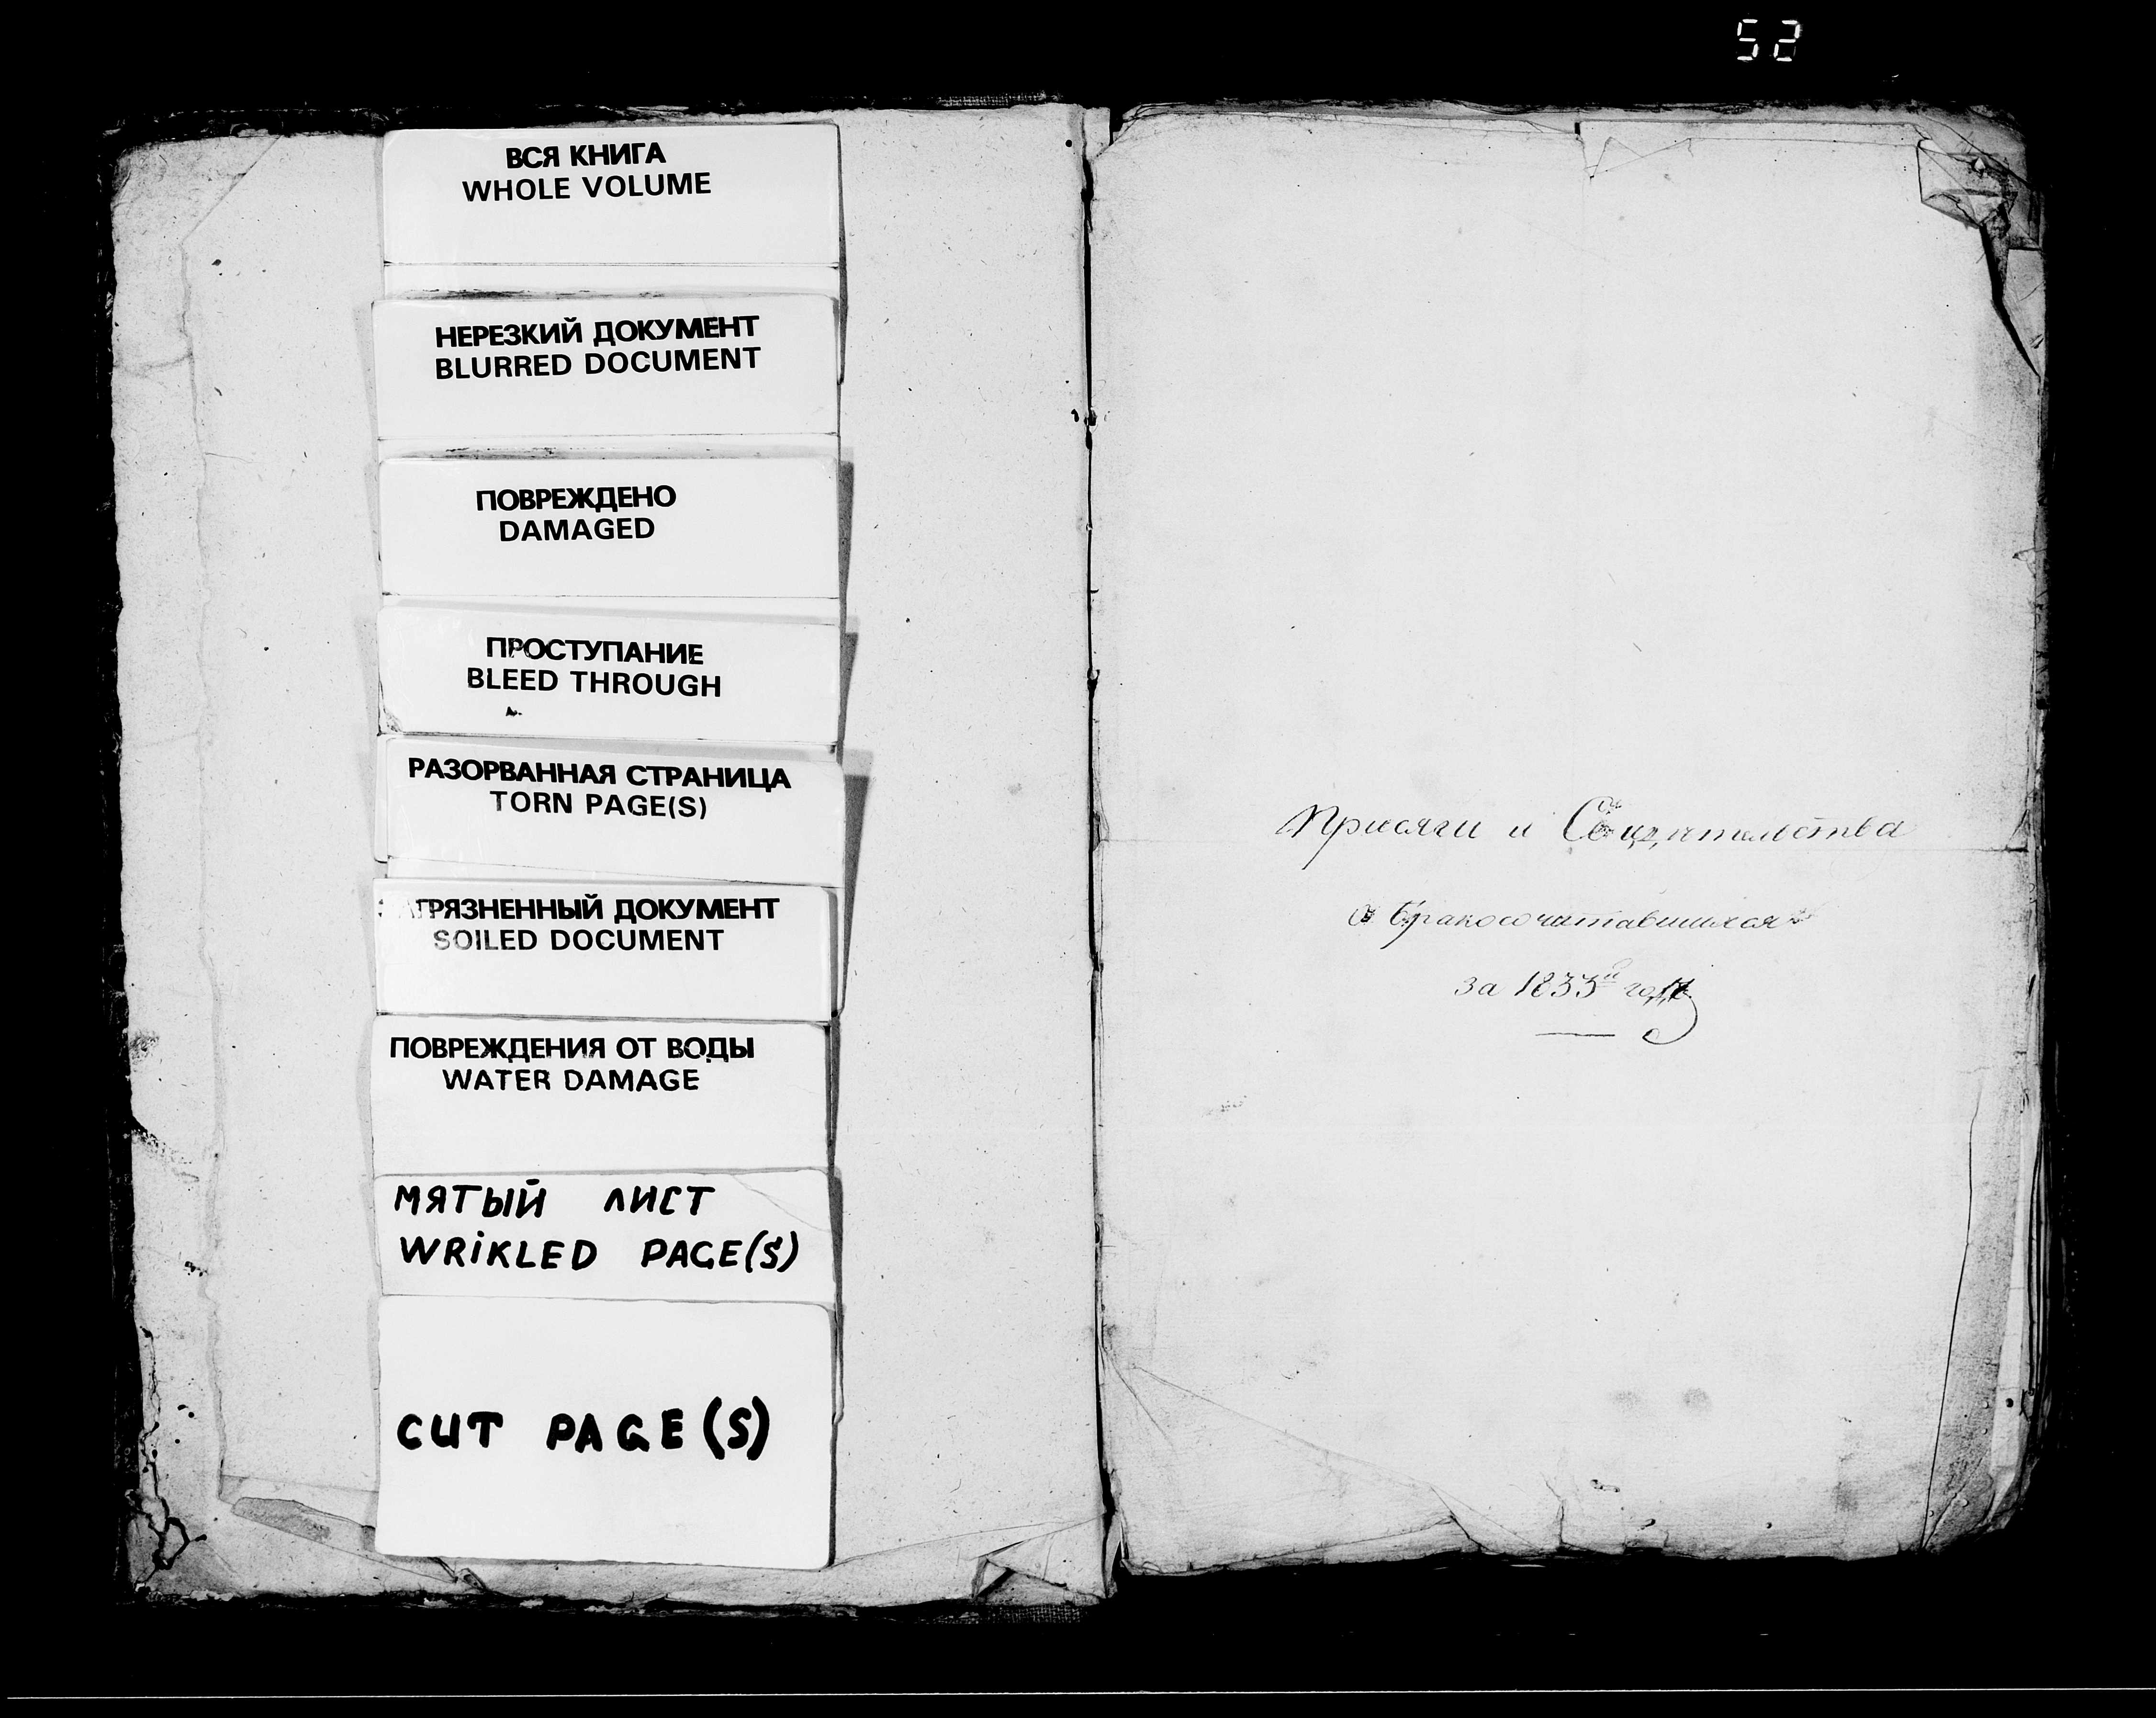 52
ВСЯ КНИГА
WHOLE VOLUME
НЕРЕЗКИЙ ДОКУМЕНТ
BLURRED DOCUMENT
ПОВРЕЖДЕНО
DAMAGED
ПРОСТУПАНИЕ
BLEED THROUGH
РАЗОРВАННАЯ СТРАНИЦА
TORN PAGE(S)
ЗАГРЯЗНЕННЫЙ ДОКУМЕНТ
SOILED DOCUMENT
ПОВРЕЖДЕНИЯ ОТ ВОДЫ
WATER DAMAGE
МЯТЫЙ ЛИСТ
WRIKLED PAGE(S)
CUT PAGE(S)
Присяги и Свидѣтельства
о бракосочитавшихся
за 1833й годъ